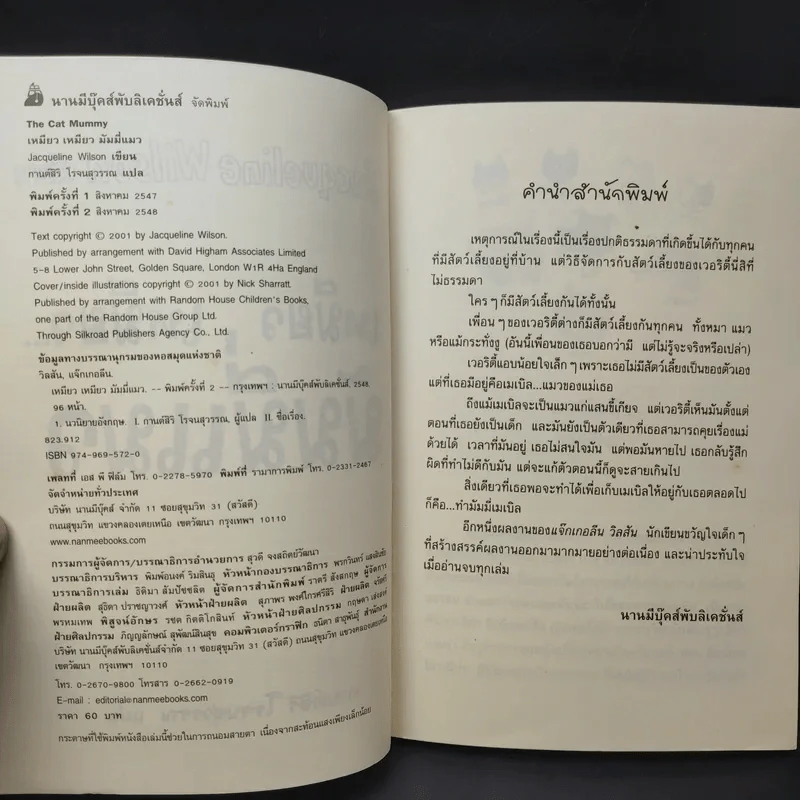 นานมีบุ๊คส์พับลิเคชั่นส์ จัดพิมพ์
The Cat Mummy
เหมียว เหมียว มัมมี่แมว
Jacqueline Wilson เขียน
กานต์สิริ โรจนสุวรรณ แปล
พิมพ์ครั้งที่ 1 สิงหาคม 2547
พิมพ์ครั้งที่ 2 สิงหาคม 2548
Text copyright © 2001 by Jacqueline Wilson.
Published by arrangement with David Higham Associates Limited
5-8 Lower John Street, Golden Square, London W1R 4Ha England
Cover/inside illustrations copyright © 2001 by Nick Sharratt.
Published by arrangement with Random House Children's Books,
one part of the Random House Group Ltd.
Through Silkroad Publishers Agency Co., Ltd.
ข้อมูลทางบรรณานุกรมของหอสมุดแห่งชาติ
วิลสัน, แจ๊กเกอลีน.
เหมียว เหมียว มัมมี่แมว. -- พิมพ์ครั้งที่ 2 -- กรุงเทพฯ : นานมีบุ๊คส์พับลิเคชั่นส์, 2548.
96 หน้า.
1. นวนิยายอังกฤษ. I. กานต์สิริ โรจนสุวรรณ, ผู้แปล II. ชื่อเรื่อง.
823.912
ISBN 974-969-572-0
เพลทที่ เอส พี ฟิล์ม โทร. 0-2278-5970 พิมพ์ที่ รามาการพิมพ์ โทร. 0-2331-2467
จัดจำหน่ายทั่วประเทศ
บริษัท นานมีบุ๊คส์ จำกัด 11 ซอยสุขุมวิท 31 (สวัสดี)
ถนนสุขุมวิท แขวงคลองเตยเหนือ เขตวัฒนา กรุงเทพฯ 10110
www.nanmeebooks.com
กรรมการผู้จัดการ/บรรณาธิการอำนวยการ สุวดี จงสถิตย์วัฒนา
บรรณาธิการบริหาร พิมพ์อนงค์ ริมสินธุ หัวหน้ากองบรรณาธิการ พรกวินทร์ แสงสินชัย
บรรณาธิการเล่ม ธิติมา สัมปัชชลิต ผู้จัดการสำนักพิมพ์ ราตรี สังสกฤษ ผู้จัดการ
ฝ่ายผลิต สุธิดา ปราชญาวงศ์ หัวหน้าฝ่ายผลิต สุภาพร พงศ์ไกรศรีสิริ ฝ่ายผลิต
พรหมเทพ พิสูจน์อักษร รชต กิตติโกสินท์ หัวหน้าฝ่ายศิลปกรรม กฤษดา
ฝ่ายศิลปกรรม ภิญญลักษณ์ สุพัฒน์สินสุข คอมพิวเตอร์กราฟิก ธนิดา สาธุพันธุ์ สำนักงาน
บริษัท นานมีบุ๊คส์พับลิเคชั่นส์จำกัด 11 ซอยสุขุมวิท 31 (สวัสดี) ถนนสุขุมวิท แขวงคลองเตยเหนือ
เขตวัฒนา กรุงเทพฯ 10110
โทร. 0-2670-9800 โทรสาร 0-2662-0919
E-mail : editorial@nanmeebooks.com
ราคา 60 บาท
กระดาษที่ใช้พิมพ์หนังสือเล่มนี้ช่วยในการถนอมสายตา เนื่องจากสะท้อนแสงเพียงเล็กน้อย
คำนำสำนักพิมพ์
เหตุการณ์ในเรื่องนี้เป็นเรื่องปกติธรรมดาที่เกิดขึ้นได้กับทุกคน
ที่มีสัตว์เลี้ยงอยู่ที่บ้าน แต่วิธีจัดการกับสัตว์เลี้ยงของเวอริตี้นี่สิที่
ไม่ธรรมดา
ใครๆ ก็มีสัตว์เลี้ยงกันได้ทั้งนั้น
เพื่อนๆ ของเวอริตี้ต่างก็มีสัตว์เลี้ยงกันทุกคน ทั้งหมา แมว
หรือแม้กระทั่งงู (อันนี้เพื่อนของเธอบอกว่ามี แต่ไม่รู้จะจริงหรือเปล่า)
เวอริตี้แอบน้อยใจเล็กๆ เพราะเธอไม่มีสัตว์เลี้ยงเป็นของตัวเอง
แต่ที่เธอมีอยู่คือเมเบิล...แมวของแม่เธอ
ถึงแม้เมเบิลจะเป็นแมวแก่แสนขี้เกียจ แต่เวอริตี้เห็นมันตั้งแต่
ตอนที่เธอยังเป็นเด็ก และมันยังเป็นตัวเดียวที่เธอสามารถคุยเรื่องแม่
ด้วยได้ เวลาที่มันอยู่ เธอไม่สนใจมัน แต่พอมันหายไป เธอกลับรู้สึก
ผิดที่ทำไม่ดีกับมัน แต่จะแก้ตัวตอนนี้ก็ดูจะสายเกินไป
สิ่งเดียวที่เธอพอจะทำได้เพื่อเก็บเมเบิลให้อยู่กับเธอตลอดไป
ก็คือ...ทำมัมมี่เมเบิล
อีกหนึ่งผลงานของแจ๊กเกอลีน วิลสัน นักเขียนขวัญใจเด็กๆ
ที่สร้างสรรค์ผลงานออกมามากมายอย่างต่อเนื่อง และน่าประทับใจ
เมื่ออ่านจบทุกเล่ม
นานมีบุ๊คส์พับลิเคชั่นส์